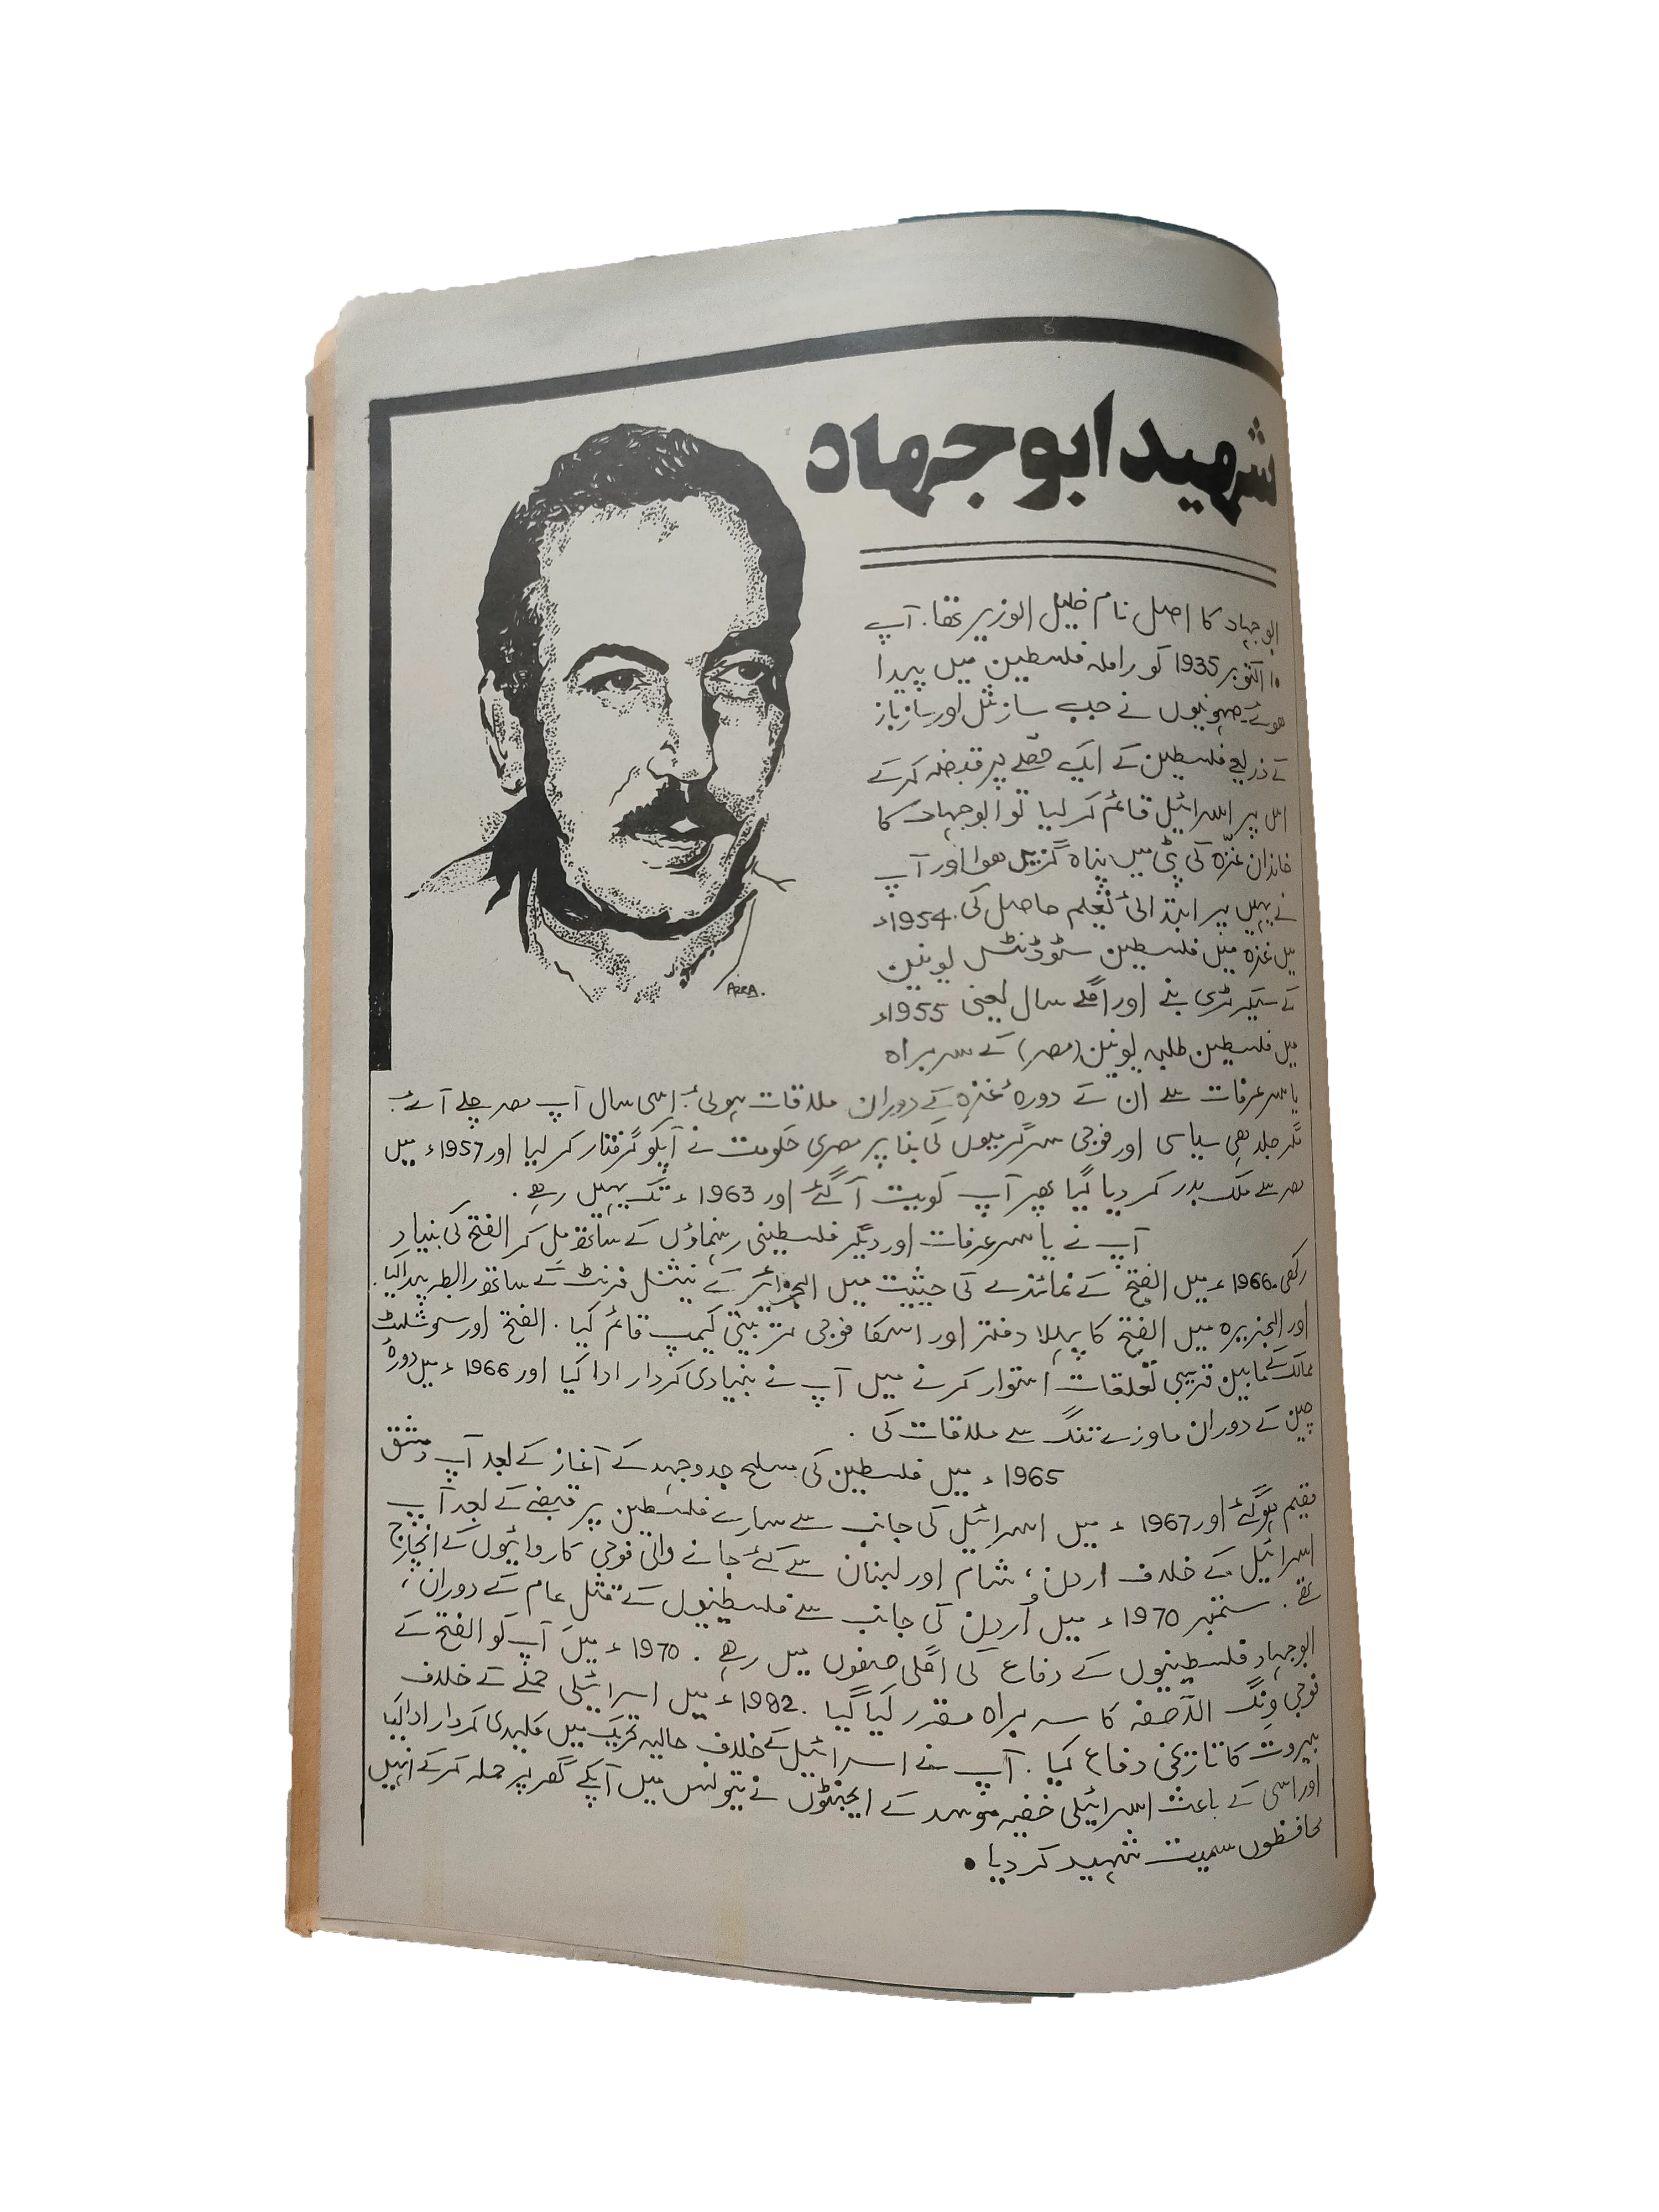 شہید ابو جہاد
ابو جہاد کا اصل نام خلیل الوزیر تھا. آپ
۱۰ اکتوبر 1935 کو راملہ فلسطین میں پیدا
ھوئے۔ صہونیوں نے جب سازشں اور سازباز
کے ذریعے فلسطین کے ایک حصّے پر قبضہ کرکے
اس پر اسرائیل قائم کر لیا تو ابوجہاد کا
خاندان غزّہ کی پٹی میں پناہ گزیں ھوا اور آپ
نے یہیں پر ابتدائی تعلیم حاصل کی. 1954ء
میں غزہ میں فلسطین سٹوڈنٹس یونین
کے سیکرٹری بنے اور اگلے سال یعنی 1955ء
میں فلسطین طلبہ یونین (مصر) کے سربراہ
یاسر عرفات سے ان کے دورۂ غزہ کے دوران ملاقات ہوئی. اِسی سال آپ مصر چلے آئے.
مگر جلد ھی سیاسی اور فوجی سرگرمیوں کی بنا پر مصری حکومت نے آپکو گرفتار کر لیا اور 1957ء میں
مصر سے ملک بدر کر دیا گیا پھر آپ کویت آ گئے اور 1963ء تک یہیں رھے.
آپ نے یاسر عرفات اور دیگر فلسطینی رہنماؤں کے ساتھ مل کر الفتح کی بنیاد
رکھی. 1966ء میں الفتح کے نمائندے کی حیثیت میں الجزائر کے نیشنل فرنٹ کے ساتھ رابطہ پیدا کیا.
اور الجزیرہ میں الفتح کا پہلا دفتر اور اسکا فوجی تربیتی کیمپ قائم کیا. الفتح اور سوشلسٹ
ممالک کے مابین قریبی تعلقات استوار کرنے میں آپ نے بنیادی کردار ادا کیا اور 1966ء میں دورۂ
چین کے دوران ماوزے تنگ سے ملاقات کی.
1965ء میں فلسطین کی مسلح جدوجہد کے آغاز کے بعد آپ دمشق
مقیم ہو گئے اور 1967ء میں اسرائیل کی جانب سے سارے فلسطین پر قبضے کے بعد آپ
اسرائیل کے خلاف اردن، شام اور لبنان سے کئے جانے والی فوجی کاروائیوں کے انچارج
تھے. ستمبر 1970ء میں اُردن کی جانب سے فلسطینیوں کے قتل عام کے دوران،
ابوجہاد فلسطینیوں کے دفاع کی اگلی صفوں میں رھے. 1970ء میں آپ کو الفتح کے
فوجی ونگ الآصفہ کا سربراہ مقرر کیا گیا. 1982ء میں اسرائیلی حملے کے خلاف
بیروت کا تاریخی دفاع کیا. آپ نے اسرائیل کے خلاف حالیہ تحریک میں کلیدی کردار ادا کیا
اور اسی کے باعث اسرائیلی خفیہ موسد کے ایجنٹوں نے تیونس میں آپکے گھر پر حملہ کرکے انہیں
محافظوں سمیت شہید کر دیا.